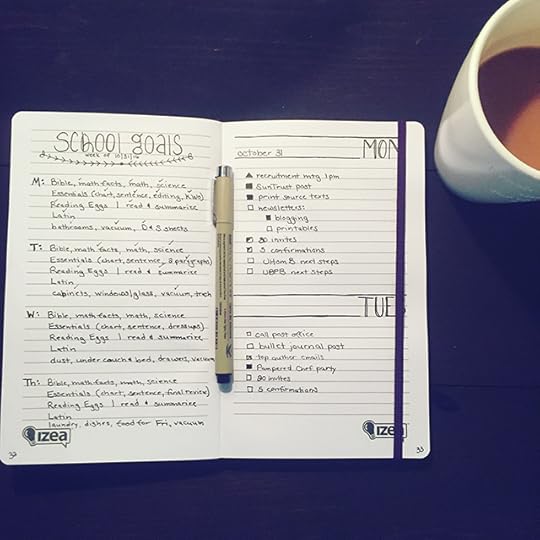 school goals
week of 10/31/16
M: Bible, math facts, math, science
Essentials (chart, sentence, editing, K, W)
Reading Eggs | read & summarize
Latin
bathrooms, vacuum, D & S sheets
T: Bible, math facts, math, science
Essentials (chart, sentence, 2 paragraphs)
Reading Eggs | read & summarize
Latin
cabinets, windows/glass, vacuum, trash
W: Bible, math facts, math, science
Essentials (chart, sentence, dressups)
Reading Eggs | read & summarize
Latin
dust, under couch & bed, drawers, vacuum
Th: Bible, math facts, math, science
Essentials (chart, sentence, final review)
Reading Eggs | read & summarize
Latin
laundry, dishes, food for Fri, vacuum
izea
32
october 31 MON
recruitment mtg 1pm
SunTrust post
print source texts
newsletters:
blogging
printables
30 invites
5 confirmations
UHomB next steps
UBPB next steps
TUE
call post office
bullet journal post
top author emails
Pampered Chef party
20 invites
5 confirmations
izea
33